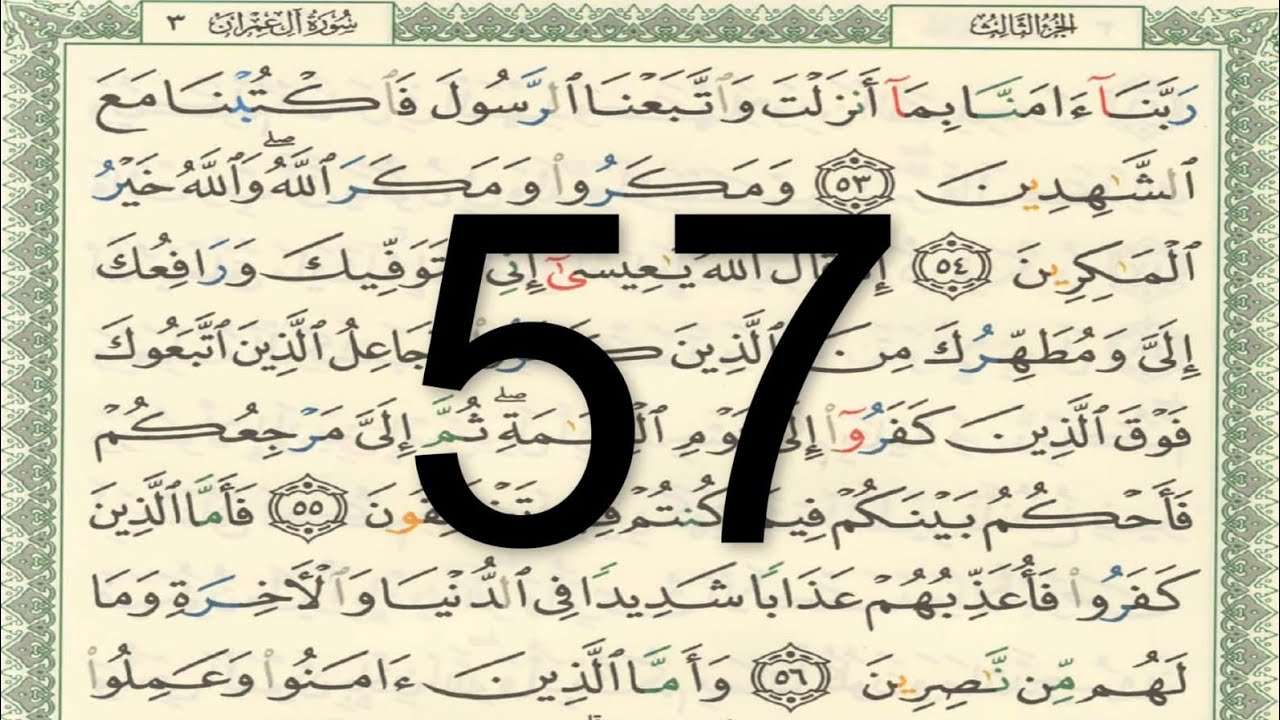 سُورَةُ آلِ عِمْرَان ٣
الجُزءُ الثَّالِث
رَبَّنَآ ءَامَنَّا بِمَآ أَنزَلْتَ وَٱتَّبَعْنَا ٱلرَّسُولَ فَٱكْتُبْنَا مَعَ
ٱلشَّٰهِدِينَ ٥٣ وَمَكَرُوا۟ وَمَكَرَ ٱللَّهُ ۖ وَٱللَّهُ خَيْرُ
ٱلْمَٰكِرِينَ ٥٤ ٱللَّهُ يَٰعِيسَىٰٓ إِنِّى وَرَافِعُكَ
إِلَىَّ وَمُطَهِّرُكَ مِنَ ٱلَّذِينَ ٱلَّذِينَ ٱتَّبَعُوكَ
فَوْقَ ٱلَّذِينَ كَفَرُوٓا۟ إِلَىٰ ۖ ثُمَّ إِلَىَّ مَرْجِعُكُمْ
فَأَحْكُمُ بَيْنَكُمْ فِيمَا كُنتُمْ ٥٥ فَأَمَّا ٱلَّذِينَ
كَفَرُوا۟ فَأُعَذِّبُهُمْ عَذَابًا شَدِيدًا فِى ٱلدُّنْيَا وَٱلْأَخِرَةِ وَمَا
لَهُم مِّن نَّٰصِرِينَ ٥٦ وَأَمَّا ٱلَّذِينَ ءَامَنُوا۟ وَعَمِلُوا۟
57